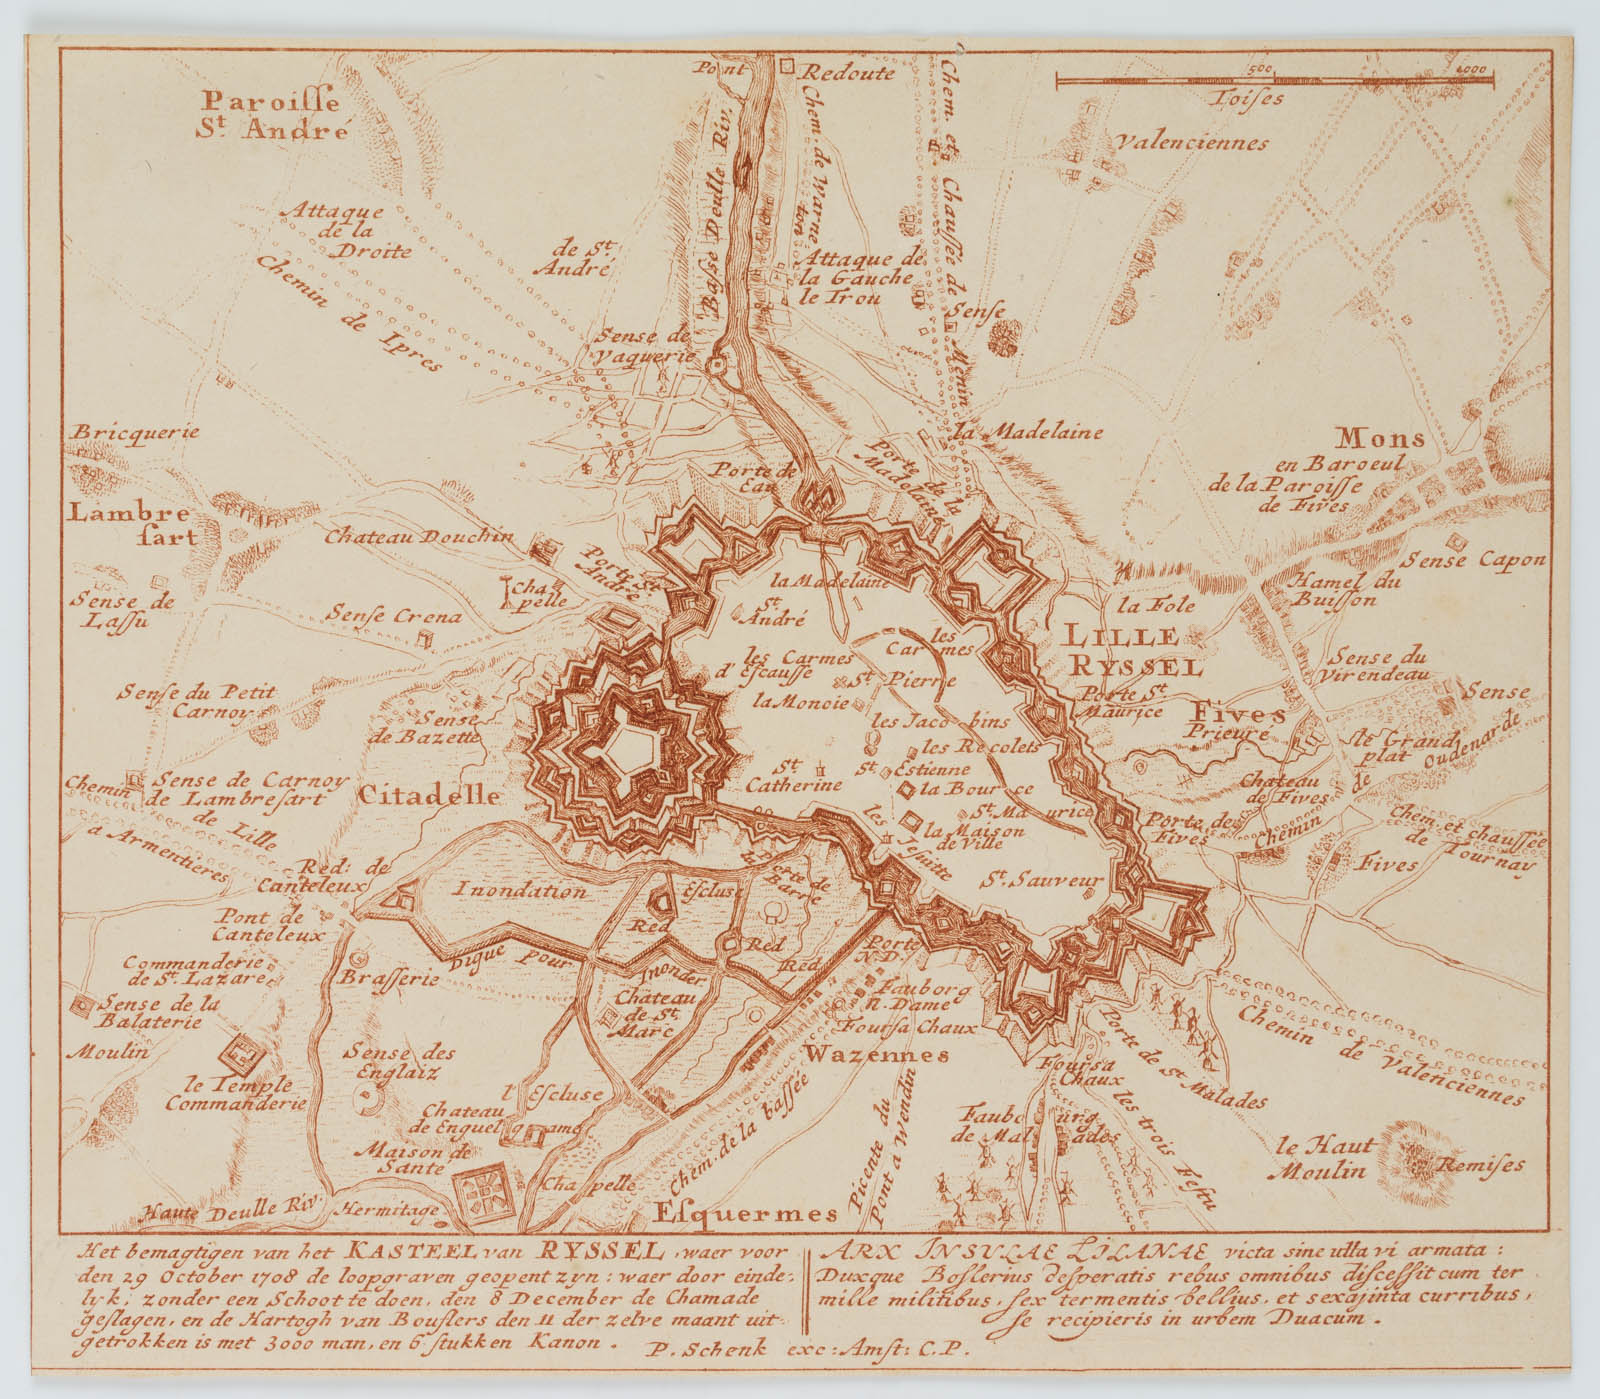 Pont
Redoute
500
1000
Toises
Paroisse
St. André
Basse Deulle Riv.
Chem. de Warne
ton
Chem. et Chaussée de Menin
Valenciennes
Attaque
de la
Droite
Chemin de Ipres
de St.
André
Attaque de
la Gauche
le Trou
Sense
Sense de
Vaquerie
Bricquerie
la Madelaine
Mons
en Baroeul
de la Paroisse
de Fives
Porte de
Eau
Porte de la
Madelaine
Lambre
sart
Chateau Douchin
Porte St.
André
Cha
pelle
Sense Capon
Hamel du
Buisson
la Madelaine
St.
André
la Fole
Sense de
Lassu
Sense Crena
LILLE
RYSSEL
les
Carmes
les Carmes
d'Escausse
St. Pierre
la Monoie
Sense du
Virendeau
Sense
Sense du Petit
Carnoy
Sense
de Bazette
Porte St.
Maurice
Fives
Prieuré
les Jacobins
les Recolets
le Grand
plat
de Oudenarde
St.
Catherine
St. Estienne
la Bource
Chemin
a Armentieres
Sense de Carnoy
de Lambresart
de Lille
Citadelle
Chateau
de Fives
Chemin
les Jesuitte
St. Maurice
la Maison
de Ville
Porte de
Fives
Chem. et chaussée
de Tournay
Fives
Red: de
Canteleux
Inondation
Escluse
Porte de
Barre
St. Sauveur
Pont de
Canteleux
Red
Red
Red
Digue Pour Inonder
Porte
N.D.
Commanderie
de St. Lazare
Brasserie
Sense de la
Balaterie
Chateau
de St.
Marc
Fauborg
N. Dame
Foursa Chaux
Chemin de Valenciennes
Moulin
Sense des
Englaiz
Wazennes
Foursa
Chaux
Porte de St Malades
le Temple
Commanderie
l'Escluse
Chateau
de Enguelgrame
Chem. de la bassée
Picente du
Pont a Wendin
Faubourg
de Malades
les trois Festu
le Haut
Moulin
Remises
Maison de
Santé
Chapelle
Haute Deulle Riv.
Hermitage
Esquermes
Het bemagtigen van het KASTEEL van RYSSEL, waer voor
den 29 October 1708 de loopgraven geopent zyn: waer door einde-
lyk, zonder een Schoot te doen, den 8 December de Chamade
geslagen, en de Hartogh van Bouflers den 11 der zelve maant uit-
getrokken is met 3000 man, en 6 stukken Kanon.
ARX INSULAE LILANAE victa sine ulla vi armata:
Duxque Boslerius desperatis rebus omnibus discessit cum ter
mille militibus, sex termentis bellius, et sexajinta curribus,
se recipieris in urbem Duacum.
P. Schenk exc: Amst: C.P.